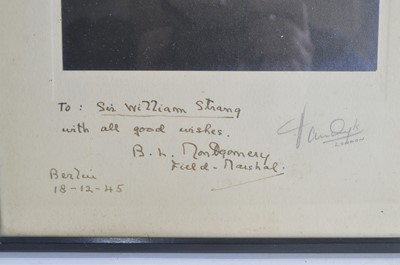 To: Sir William Strang
with all good wishes.
B. L. Montgomery
Field-Marshal.
Berlin
18-12-45
Vandyk
London